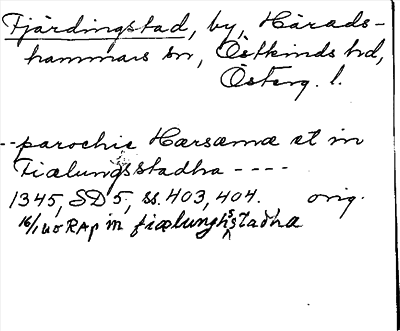 Fjärdingstad, by, Härads-
hammars sn, Östkinds hd,
Österg. l.
--parochie Hærsæmæ æt in
Fiælungsstadha ----
1345, SD 5, ss. 403, 404. orig.
16/1 RAp in fiælunghsstadha